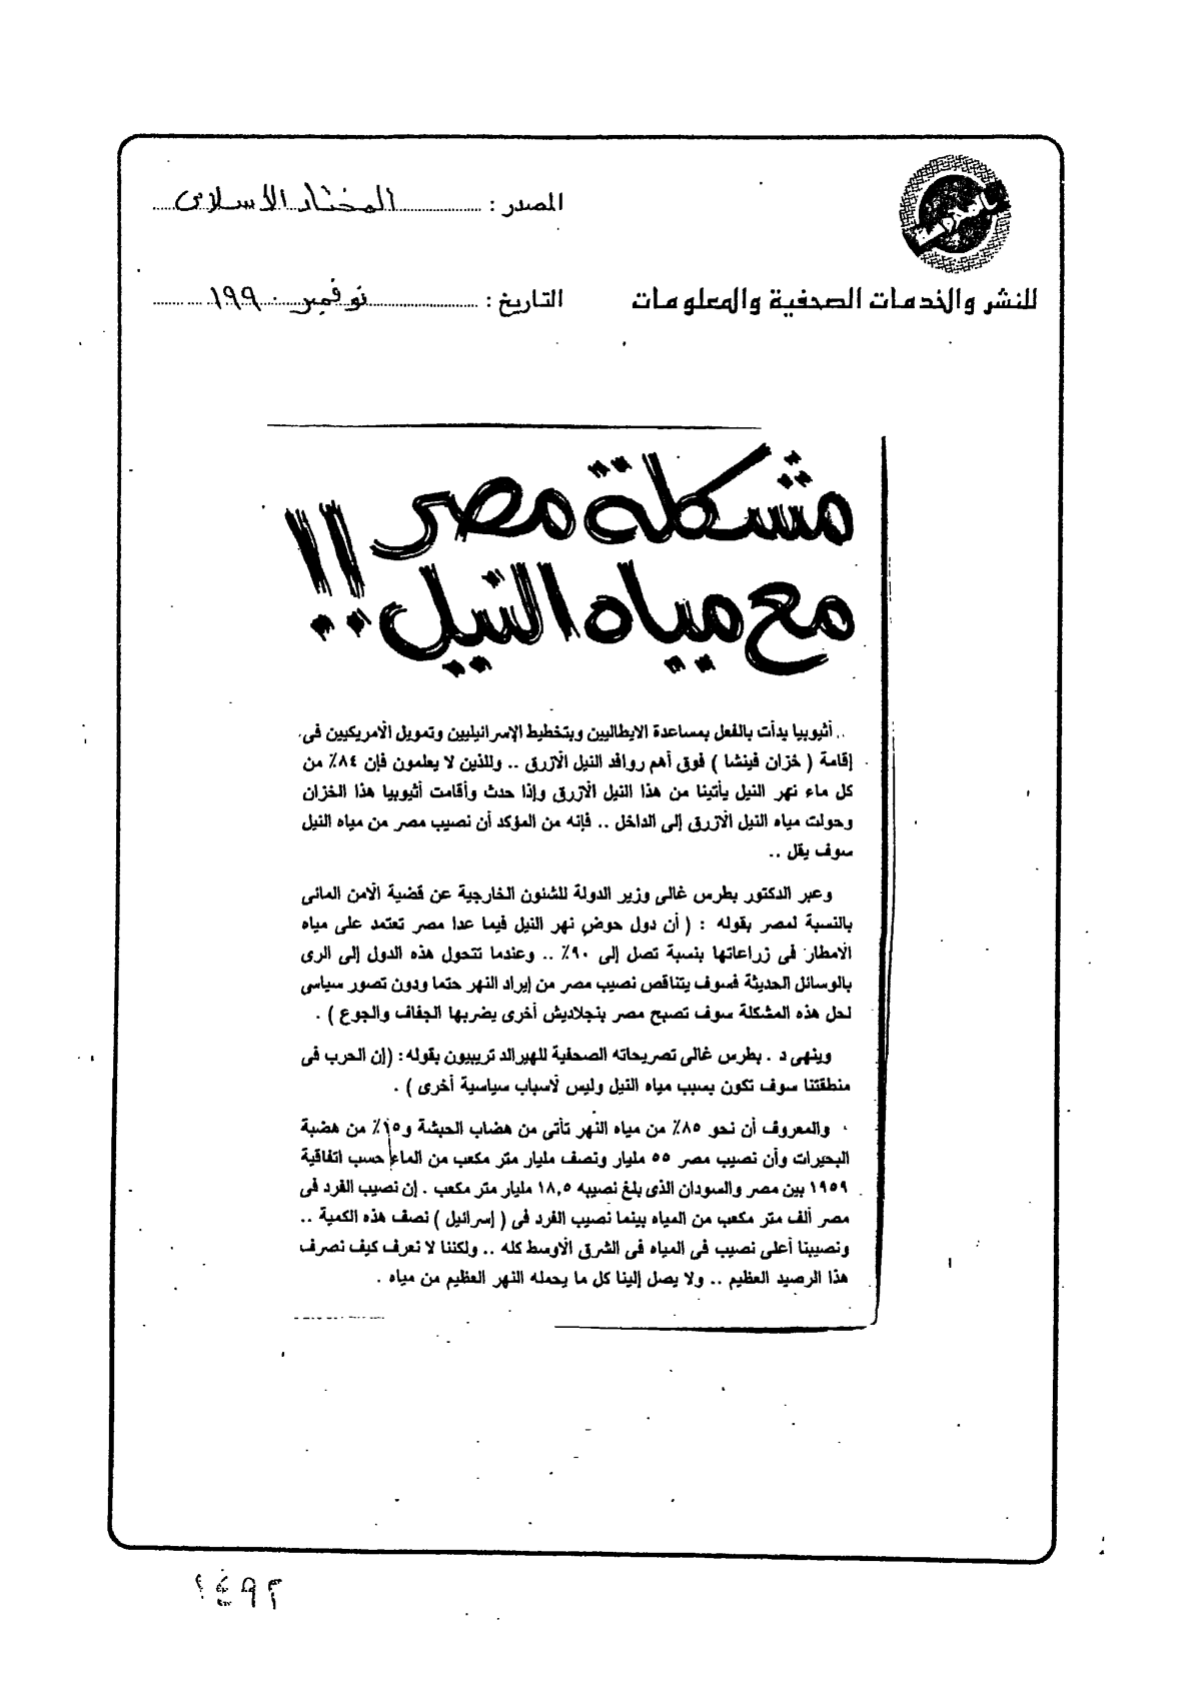 المصدر : المختار الاسلامى
للنشر والخدمات الصحفية والمعلومات
التاريخ : نوفمبر ١٩٩٠
مشكلة مصر
مع مياه النيل !!
.. أثيوبيا بدأت بالفعل بمساعدة الايطاليين وبتخطيط الإسرائيليين وتمويل الأمريكيين فى
إقامة ( خزان فينشا ) فوق أهم روافد النيل الأزرق .. وللذين لا يعلمون فإن ٨٤٪ من
كل ماء نهر النيل يأتينا من هذا النيل الأزرق وإذا حدث وأقامت أثيوبيا هذا الخزان
وحولت مياه النيل الأزرق إلى الداخل .. فإنه من المؤكد أن نصيب مصر من مياه النيل
سوف يقل ..
وعبر الدكتور بطرس غالى وزير الدولة للشئون الخارجية عن قضية الأمن المائى
بالنسبة لمصر بقوله : ( أن دول حوض نهر النيل فيما عدا مصر تعتمد على مياه
الأمطار فى زراعاتها بنسبة تصل إلى ٩٠٪ .. وعندما تتحول هذه الدول إلى الرى
بالوسائل الحديثة فسوف يتناقص نصيب مصر من إيراد النهر حتما ودون تصور سياسى
لحل هذه المشكلة سوف تصبح مصر بنجلاديش أخرى يضربها الجفاف والجوع ) .
وينهى د . بطرس غالى تصريحاته الصحفية للهيرالد تريبيون بقوله : (إن الحرب فى
منطقتنا سوف تكون بسبب مياه النيل وليس لأسباب سياسية أخرى ) .
والمعروف أن نحو ٨٥٪ من مياه النهر تأتى من هضاب الحبشة و١٥٪ من هضبة
البحيرات وأن نصيب مصر ٥٥ مليار ونصف مليار متر مكعب من الماء حسب اتفاقية
١٩٥٩ بين مصر والسودان الذى بلغ نصيبه ١٨,٥ مليار متر مكعب . إن نصيب الفرد فى
مصر ألف متر مكعب من المياه بينما نصيب الفرد فى ( إسرائيل ) نصف هذه الكمية ..
ونصيبنا أعلى نصيب فى المياه فى الشرق الأوسط كله .. ولكننا لا نعرف كيف نصرف
هذا الرصيد العظيم .. ولا يصل إلينا كل ما يحمله النهر العظيم من مياه .